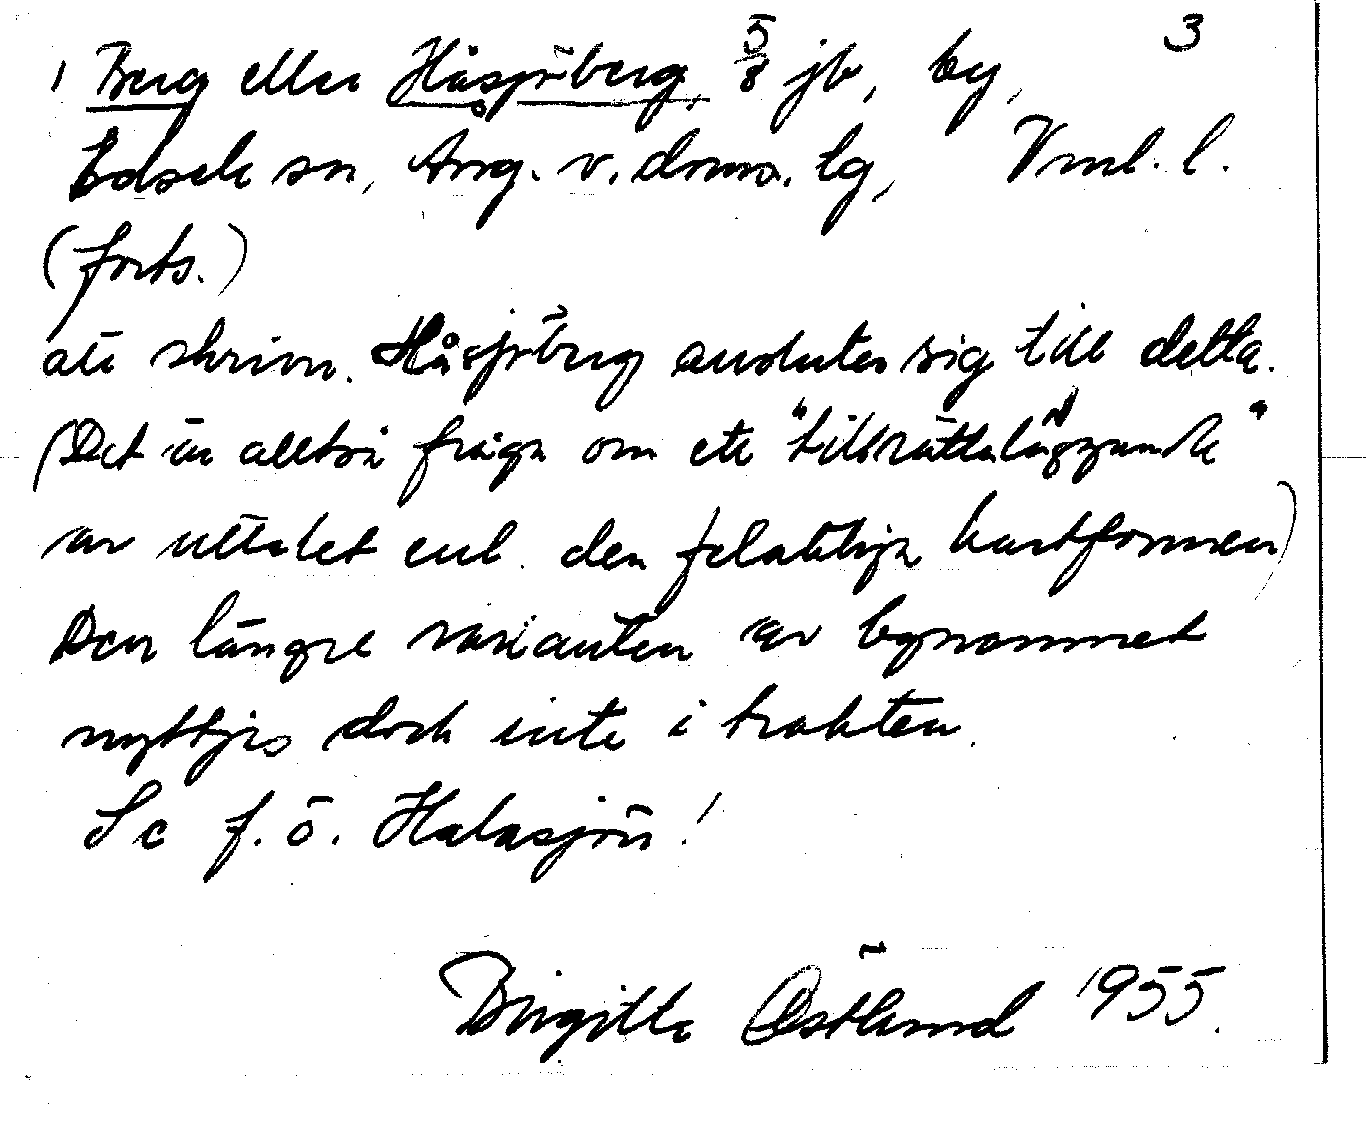 3
1 Berg eller Håsjöberg, 5/8 jb, by,
Edsele sn, Ång. v. doms. tg, Vnl. l.
(forts.)
att skriva. Håsjöberg ansluter sig till detta.
(Det är alltså fråga om ett "tillrättaläggande"
av uttalet enl. den felaktiga kartformen)
Den längre varianten av bynamnet
nyttjas dock inte i trakten.
Se f. ö. Halasjön!
Birgitta Östlund 1955.